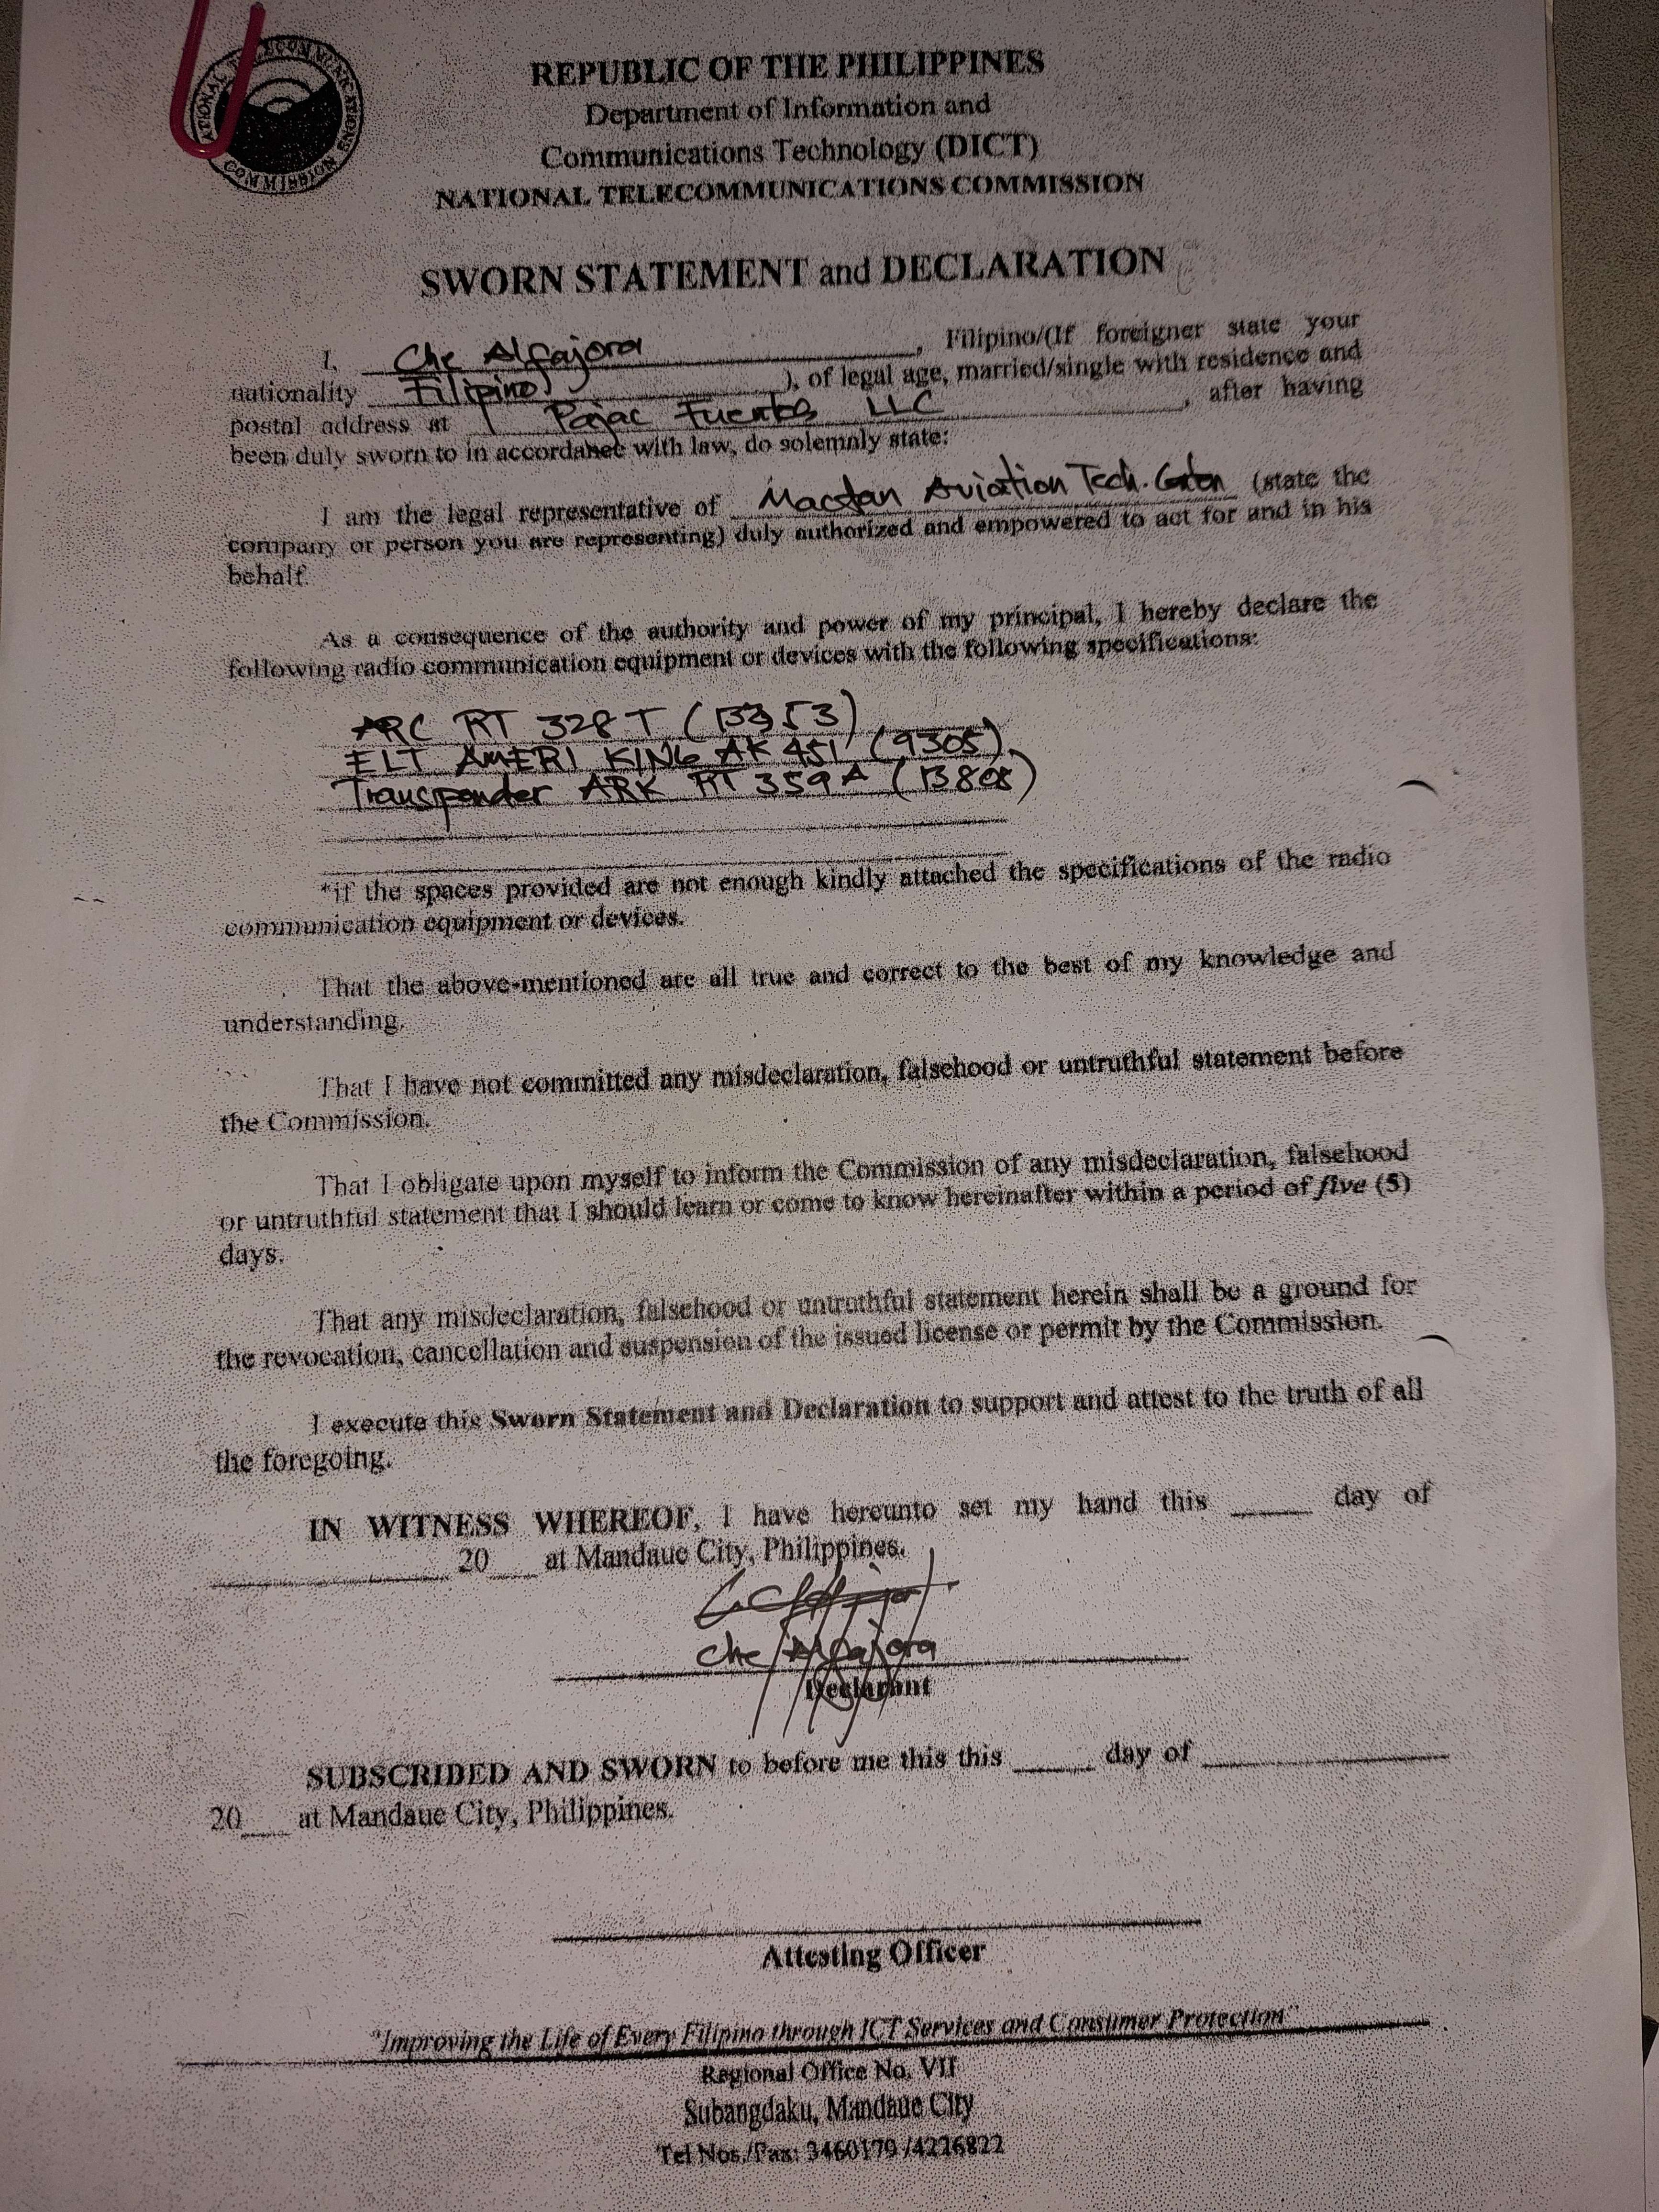 NATIONAL TELECOMMUNICATIONS COMMISSION
REPUBLIC OF THE PHILIPPINES
Department of Information and
Communications Technology (DICT)
NATIONAL TELECOMMUNICATIONS COMMISSION
SWORN STATEMENT and DECLARATION
I, Che Alfajora, Filipino/(If foreigner state your
nationality Filipino), of legal age, married/single with residence and
postal address at Pajac Fuentes LLC, after having
been duly sworn to in accordance with law, do solemnly state:
I am the legal representative of Mactan Aviation Tech. (state the
company or person you are representing) duly authorized and empowered to act for and in his
behalf.
As a consequence of the authority and power of my principal, I hereby declare the
following radio communication equipment or devices with the following specifications:
ARC RT 328T
ELT AMERI KING AK 451 (9305)
Transponder ARK RT 359A (13808)
*if the spaces provided are not enough kindly attached the specifications of the radio
communication equipment or devices.
That the above-mentioned are all true and correct to the best of my knowledge and
understanding.
That I have not committed any misdeclaration, falsehood or untruthful statement before
the Commission.
That I obligate upon myself to inform the Commission of any misdeclaration, falsehood
or untruthful statement that I should learn or come to know hereinafter within a period of five (5)
days.
That any misdeclaration, falsehood or untruthful statement herein shall be a ground for
the revocation, cancellation and suspension of the issued license or permit by the Commission.
I execute this Sworn Statement and Declaration to support and attest to the truth of all
the foregoing.
IN WITNESS WHEREOF, I have hereunto set my hand this ____ day of
____ 20__ at Mandaue City, Philippines.
Che Alfajora
Declarant
SUBSCRIBED AND SWORN to before me this this ____ day of ____
20__ at Mandaue City, Philippines.
Attesting Officer
"Improving the Life of Every Filipino through ICT Services and Consumer Protection"
Regional Office No. VII
Subangdaku, Mandaue City
Tel Nos./Fax: 3460179 /4226822